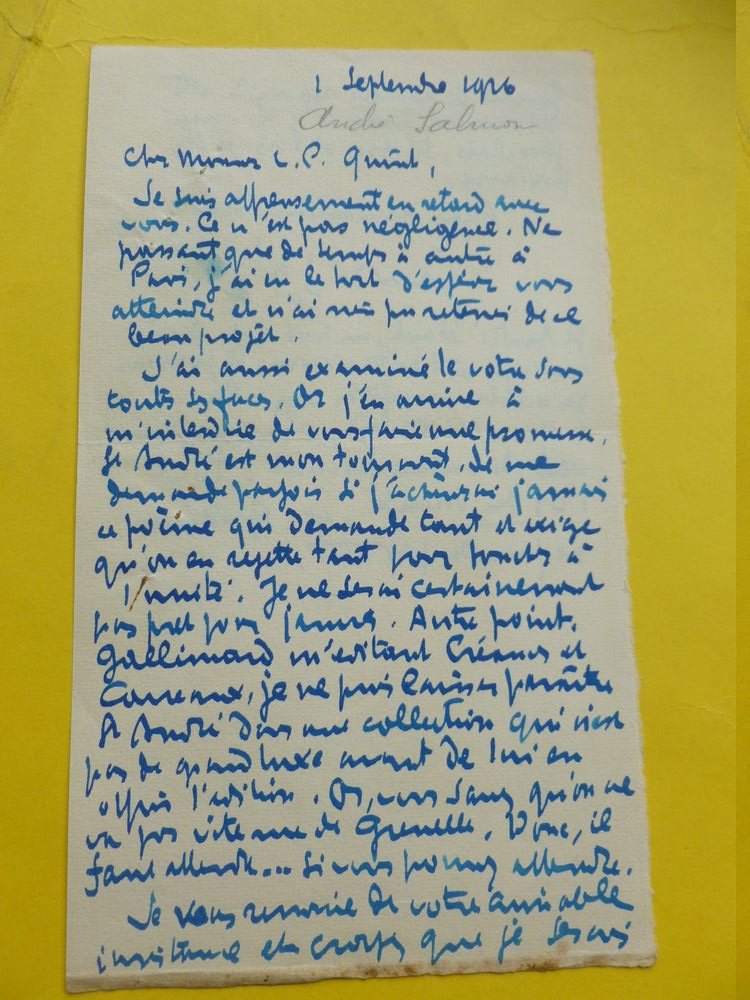 1 Septembre 1926
André Salmon
Cher Monsieur L. P. Quint,
Je suis affreusement en retard avec
vous. Ce n'est pas négligence. Ne
passant que de temps à autre à
Paris, j'ai eu le tort d'espérer vous
atteindre et n'ai rien pu retenir de ce
beau projet.
J'ai aussi examiné le votre sous
toutes ses faces. Or j'en arrive à
m'interdire de vous faire une promesse.
St André est mon tourment. Je me
demande parfois si j'achèverai jamais
ce poème qui demande tant et exige
qu'on en rejette tant pour toucher à
l'unité. Je ne serai certainement
pas pret pour janvier. Autre point.
Gallimard m'editant Créances et
Carreaux, je ne puis laisser paraitre
St André dans une collection qui n'est
pas de grand luxe avant de lui en
offrir l'edition. Or, vous savez qu'on ne
va pas vite rue de Grenelle. Donc, il
faut attendre... si vous pouvez attendre.
Je vous remercie de votre aimable
insistance et croyez que je serais